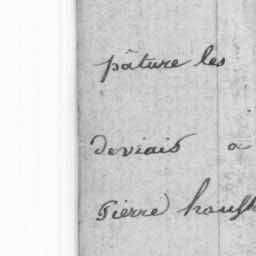 pâture les
deviais a
Pierre